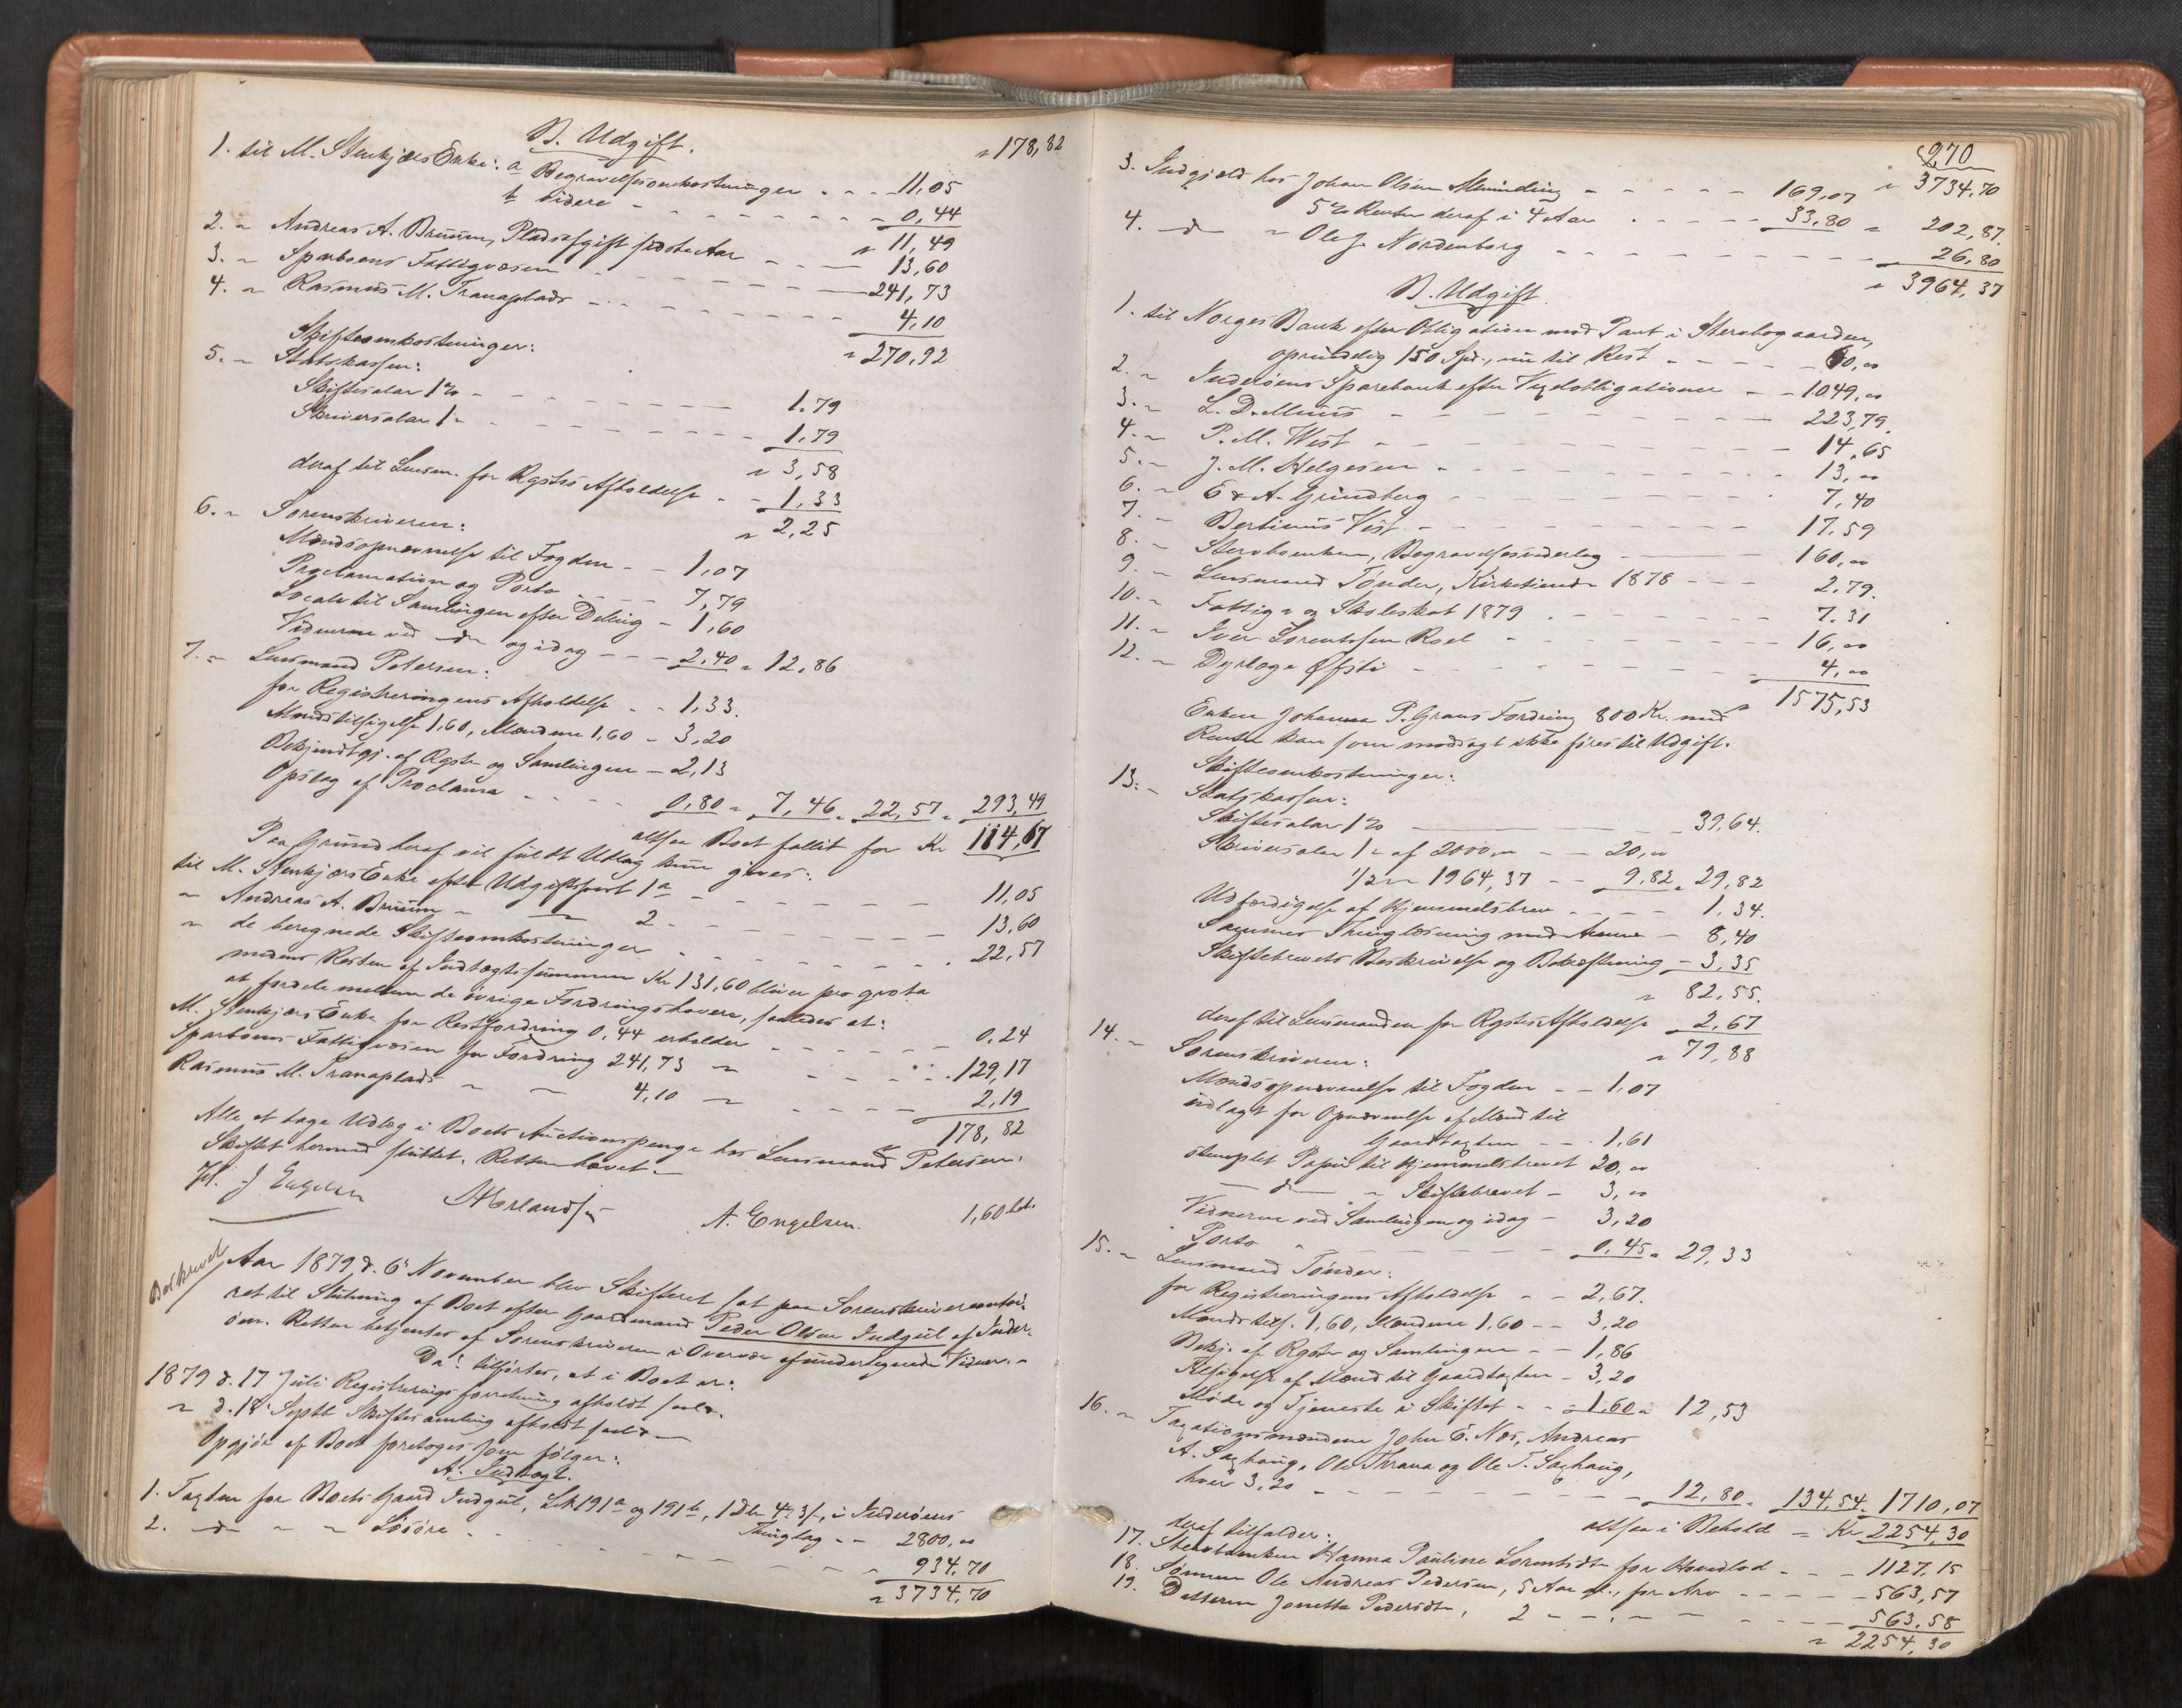 B. Udgift. " 178,82
1. til M. Stenkjærs Enke: a Begravelsesomkostninger - - - 11,05
b videre - - - - - 0,44
" 11,49
2. " Andreas A. Bruum, Pladsafgift sidste Aar - - - 13,60
3. " Sparboens Fattigvæsen - - - - 241,73
4. " Rasmus M. Tranaplads - - - - 4,10
" 270,92
Skifteomkostninger:
5. " Statskassen:
Skiftesalar 1% - - - - 1,79
Skriversalar 1 " - - - - 1,79
" 3,58
deraf til Lensm. for Rgstrs Afholdelse - - 1,33
" 2,25
6. " Sorenskriveren:
Mændsopnævnelse til Fogden - - 1,07
Proclamation og Porto - - - 7,79
Locale til Samlingen efter Deling - 1,60
Vidnerne ved do og idag - - - 2,40 " 12,86
7. " Lensmand Petersen:
for Registreringens Afholdelse - - 1,33.
Mændstilsigelse 1,60, Mændene 1,60 - 3,20
Bekjendtgj. af Rgstr og Samlingen - 2,13
Opslag af Proclama - - - - 0,80 " 7,46 " 22,57 " 293,49
altsaa Boet fallit for Kr 114,67
Paa Grund heraf vil fuldt Udlæg kun gives:
til M. Stenkjærs Enke efter Udgiftspost 1 a - - - - 11,05
" Andreas A. Bruum " — 2 - - - - 13,60
" de beregnede Skifteomkostninger - - - - 22,57
medens Resten af Indtægtssummen Kr 131,60 bliver pro qvota
at fordele mellem de øvrige Fordringshavere, saaledes at:
M. Stenkjærs Enke for Restfordring 0,44 erholder - - - - 0,24
Sparboens Fattigvæsen for Fordring 241,73 " - - - - 129,17
Rasmus M. Tranaplads " " 4,10 " - - - - 2,19
178,82
Alle at tage Udlæg i Boets Auctionspenge hos Lensmand Petersen.
Skiftet hermed sluttet. Retten hævet.
J Engelsen AErlandsen A. Engelsen. 1,60 bet.
Beskrevet
Aar 1879 d. 6 November blev Skifteret sat paa Sorenskrivercontoi-
ret til Slutning af Boet efter Gaardmand Peder Olsen Indgul af Inder-
øen. Retten betjentes af Sorenskriveren i Overvær af undertegnede Vidner. -
Da: tilførtes, at i Boet er:
1879 d. 17 Juli Registreringsforretning afholdt
" d. 18 Septb Skiftesamling afholdt
Opgjør af Boet foretoges som følger:
A. Indtægt.
1. Taxten for Boets Gaard Indgul, Lb 191 a og 191 b, 1 Dlr 4 3/, i Inderøens
Thinglag - - 2800,00
2. do " " Løsøre - - - - " 934,70
" 3734,70
270
" 3734,70
3. Indgjæld hos Johan Olsen Almindling - - - - 169,07
5% Renter deraf i 4 Aar - - - - 33,80 " 202,87.
4. do " Ole J. Nordenborg - - - - 26,80
" 3964,37
B. Udgift.
1. til Norges Bank efter Obligation med Pant i Stervbogaarden,
oprindelig 150 Spd., nu til Rest - - - - 60,00
2. " Inderøens Sparebank efter Vexelobligationer - - 1049,00
3. " L. D. Muus - - - - 223,79.
4. " P. M. West - - - - 14,65
5. " J. M. Helgesen - - - - 13,00
6. " E & A. Grundberg - - - - 7,40
7. " Bertinus Vist - - - - 17,59
8. " Stervboenken, Begravelsesvederlag - 160,00
9. " Lensmand Tønder, Kirketiende 1878 - - - 2,79.
10. " Fattig " og Skoleskat 1879 - - - - 7,31
11. " Iver Lorentsen Roel - - - - 16,00
12. " Dyrlæge Øfsti - - - - 4,00
" 1575,53
Enken Johanna P. Graus Fordring 800 Kr. med
Renter kan som modsagt ikke føres til Udgift.
Skifteomkostninger:
13. " Statskassen:
Skiftesalar 1% - - - 39,64.
Skriversalar 1 " af 2000,00 - - 20,00
1/2 " " 1964,37 - - 9,82 " 29,82
Udfærdigelse af Hjemmelsbrev - - - 1,34.
Sammes Thinglæsning med - 8,40
Skiftebrevets Beskrivelse og Bekræftning - 3,35
" 82,55.
deraf til Lensmanden for Rgstrs Afholdelse 2,67
" 79,88
14. " Sorenskriveren:
Mændsopnævnelse til Fogden - - 1,07
udlagt for Opnævnelse af Mænd til
Gaardtaxten - - - 1,61
stemplet Papir til Hjemmelsbrevet 20,00
— do — " Skiftebrevet - 3,00
Vidnerne ved Samlingen og idag - 3,20
Porto - - - - 0,45 " 29,33
15. " Lensmand Tønder:
for Registreringens Afholdelse - - 2,67.
Mændstils. 1,60, Mændene 1,60 - - 3,20
Bekj. af Rgstr og Samlingen - - 1,86
Tilsigelse af Mænd til Gaardtaxten - 3,20
Møde og Tjeneste i Skiftet - - " 1,60 " 12,53
16. " Taxationsmændene John E. Næs, Andreas
A. Saxhaug, Ole Thrana og Ole T. Saxhaug,
hver 3,20 - - - - 12,80 " 134,54 " 1710,07
altsaa i Behold = Kr 2254,30
deraf tilfalder:
17. Stervboenken Hanna Pauline Lorentsdtr for Hovedlod - - - 1127,15
18. Sønnen Ole Andreas Pedersen, 5 Aar gl., for Arv - - - 563,57
19. Datteren Jonetta Pedersdtr, 2 " " " - - - 563,58
" 2254,30